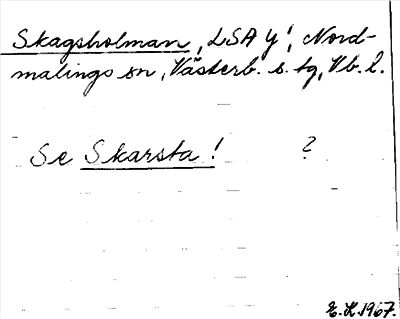 Skagsholman, LSA y', Nord-
malings sn, Västerb. s. tg, Vb. l.
Se Skarsta! ?
E.H. 1967.